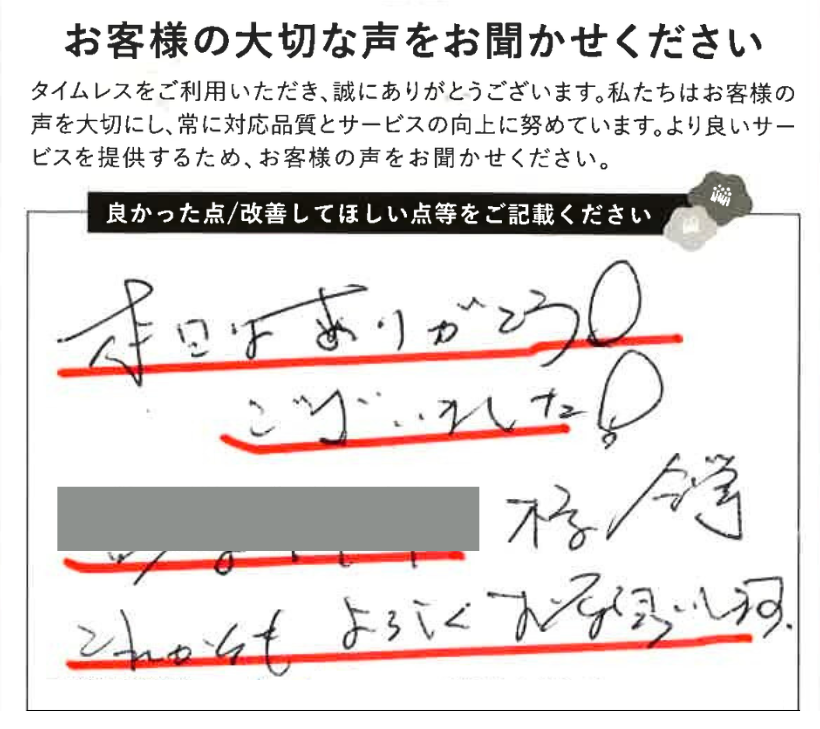 お客様の大切な声をお聞かせください
タイムレスをご利用いただき、誠にありがとうございます。私たちはお客様の
声を大切にし、常に対応品質とサービスの向上に努めています。より良いサー
ビスを提供するため、お客様の声をお聞かせください。
良かった点/改善してほしい点等をご記載ください
本日はありがとう
ございました!
様
これからも よろしくお願いします.